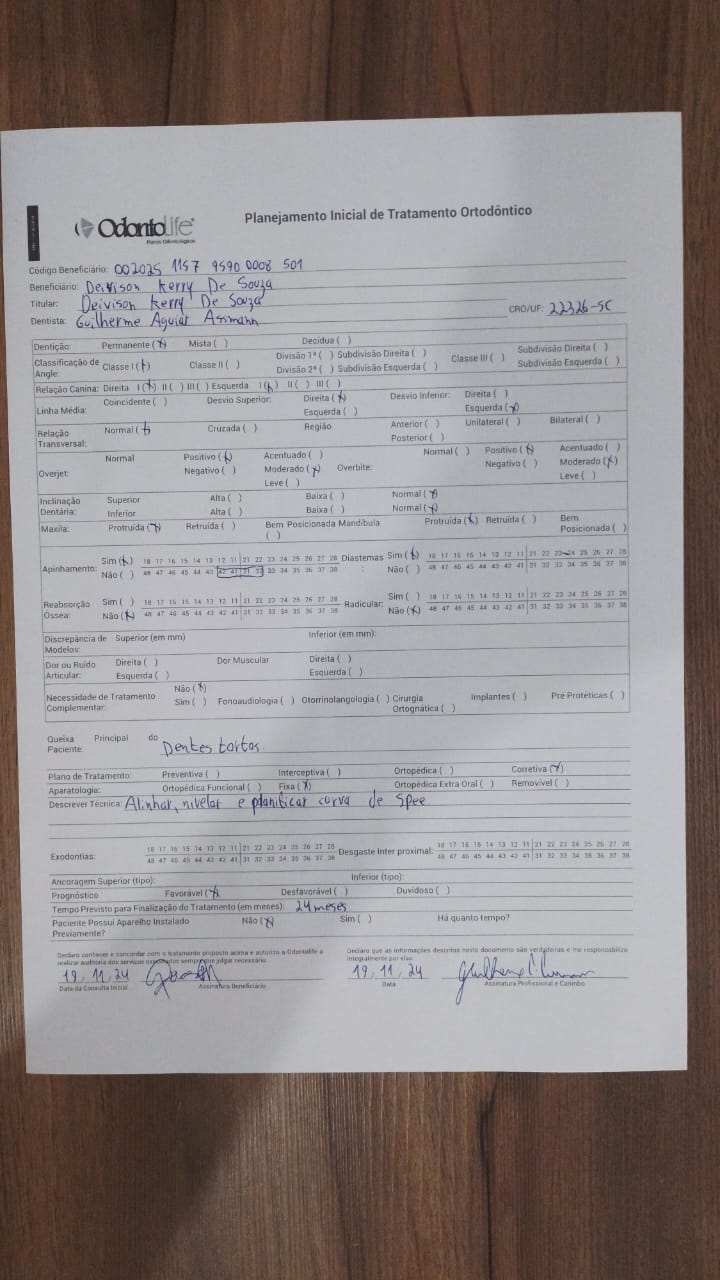 OdontoLife
Planos Odontológicos
Planejamento Inicial de Tratamento Ortodôntico
Código Beneficiário: 002025 1157 9590 0008 501
Beneficiário: Deivison Kerry De Souza
Titular: Deivison Kerry De Souza
Dentista: Guilherme Aguiar Assmann CRO/UF: 22326-SC
Dentição: Permanente (x) Mista ( ) Decídua ( )
Classificação de Angle: Classe I (x) Classe II ( ) Divisão 1ª ( ) Subdivisão Direita ( ) Classe III ( ) Subdivisão Direita ( )
Divisão 2ª ( ) Subdivisão Esquerda ( ) Subdivisão Esquerda ( )
Relação Canina: Direita I (x) II ( ) III ( ) Esquerda I (x) II ( ) III ( )
Linha Média: Coincidente ( ) Desvio Superior: Direita (x) Desvio Inferior: Direita ( )
Esquerda ( ) Esquerda (x)
Relação Transversal: Normal (x) Cruzada ( ) Região Anterior ( ) Unilateral ( ) Bilateral ( )
Posterior ( )
Overjet: Normal Positivo (x) Acentuado ( ) Overbite: Normal ( ) Positivo (x) Acentuado ( )
Negativo ( ) Moderado (x) Negativo ( ) Moderado (x)
Leve ( ) Leve ( )
Inclinação Dentária: Superior Alta ( ) Baixa ( ) Normal (x)
Inferior Alta ( ) Baixa ( ) Normal (x)
Maxila: Protruída (x) Retruída ( ) Bem Posicionada ( ) Mandíbula Protruída (x) Retruída ( ) Bem Posicionada ( )
Apinhamento: Sim (x) 18 17 16 15 14 13 12 11 21 22 23 24 25 26 27 28 Diastemas: Sim (x) 18 17 16 15 14 13 12 11 21 22 23 24 25 26 27 28
Não ( ) 48 47 46 45 44 43 42 41 31 32 33 34 35 36 37 38 Não ( ) 48 47 46 45 44 43 42 41 31 32 33 34 35 36 37 38
Reabsorção Óssea: Sim ( ) 18 17 16 15 14 13 12 11 21 22 23 24 25 26 27 28 Radicular: Sim ( ) 18 17 16 15 14 13 12 11 21 22 23 24 25 26 27 28
Não (x) 48 47 46 45 44 43 42 41 31 32 33 34 35 36 37 38 Não (x) 48 47 46 45 44 43 42 41 31 32 33 34 35 36 37 38
Discrepância de Modelos: Superior (em mm) Inferior (em mm):
Dor ou Ruído Articular: Direita ( ) Dor Muscular Direita ( )
Esquerda ( ) Esquerda ( )
Necessidade de Tratamento Complementar: Não (x)
Sim ( ) Fonoaudiologia ( ) Otorrinolangologia ( ) Cirurgia Ortognática ( ) Implantes ( ) Pré Protéticas ( )
Queixa Principal do Paciente: Dentes tortos
Plano de Tratamento: Preventiva ( ) Interceptiva ( ) Ortopédica ( ) Corretiva (x)
Aparatologia: Ortopédica Funcional ( ) Fixa (x) Ortopédica Extra Oral ( ) Removível ( )
Descrever Técnica: Alinhar, nivelar e planificar curva de Spee
Exodontias: 18 17 16 15 14 13 12 11 21 22 23 24 25 26 27 28 Desgaste Inter proximal: 18 17 16 15 14 13 12 11 21 22 23 24 25 26 27 28
48 47 46 45 44 43 42 41 31 32 33 34 35 36 37 38 48 47 46 45 44 43 42 41 31 32 33 34 35 36 37 38
Ancoragem Superior (tipo): Inferior (tipo):
Prognóstico Favorável (x) Desfavorável ( ) Duvidoso ( )
Tempo Previsto para Finalização do Tratamento (em meses): 24 meses
Paciente Possui Aparelho Instalado Previamente? Não (x) Sim ( ) Há quanto tempo?
Declaro conhecer e concordar com o tratamento proposto acima e autorizo a Odontolife a realizar auditoria dos serviços executados sempre que julgar necessário.
Declaro que as informações descritas neste documento são verdadeiras e me responsabilizo integralmente por elas
19, 11, 24 19, 11, 24
Data da Consulta Inicial Assinatura Beneficiário Data Assinatura Profissional e Carimbo